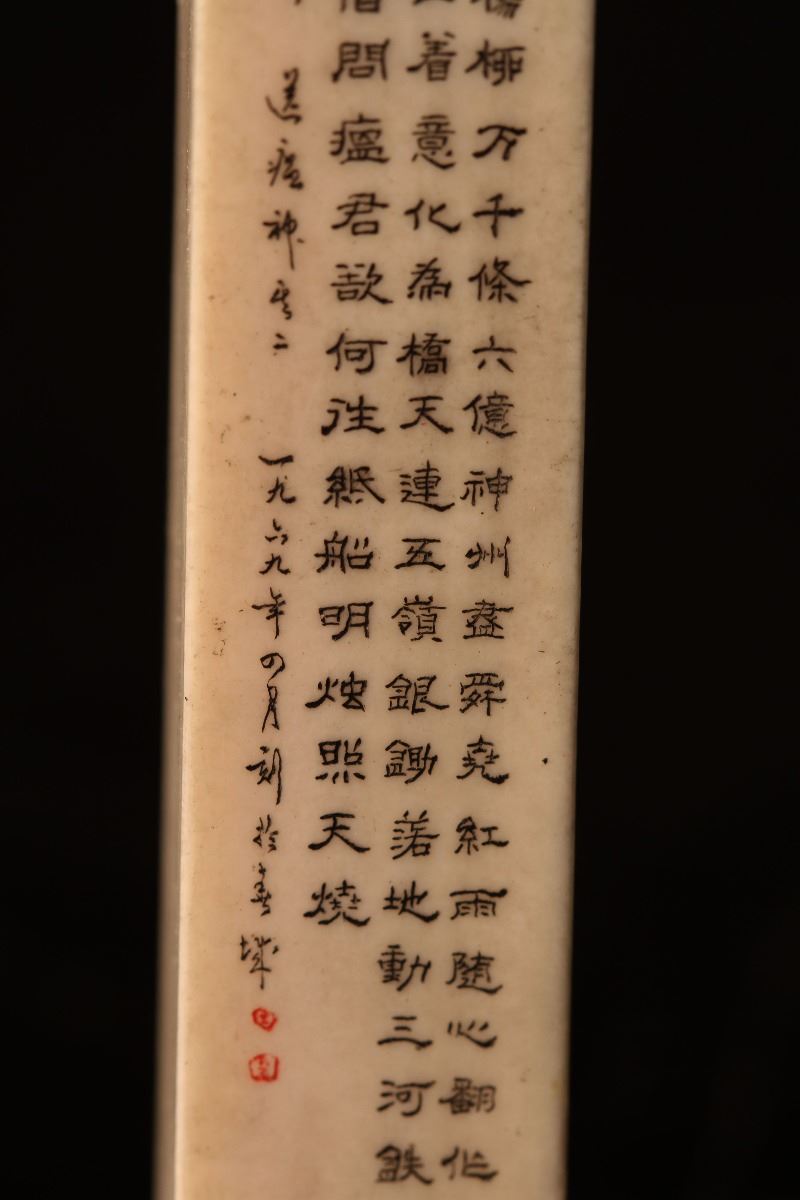 楊柳万千條六億神州盡舜尧紅雨随心翻作
山着意化為橋天連五嶺銀鋤落地動三河鉄
借問瘟君欲何往紙船明烛照天燒
送瘟神其二 一九六九年四月刻於春城